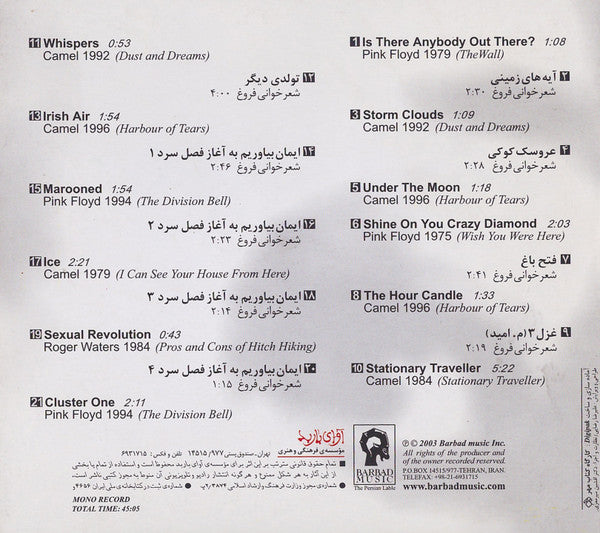 1 Is There Anybody Out There? 1:08
Pink Floyd 1979 (TheWall)
۲ آیه های زمینی
شعرخوانی فروغ ۲:۳۰
3 Storm Clouds 1:09
Camel 1992 (Dust and Dreams)
۴ عروسک کوکی
شعرخوانی فروغ ۲:۲۸
5 Under The Moon 1:18
Camel 1996 (Harbour of Tears)
6 Shine On You Crazy Diamond 2:03
Pink Floyd 1975 (Wish You Were Here)
۷ فتح باغ
شعرخوانی فروغ ۲:۴۱
8 The Hour Candle 1:33
Camel 1996 (Harbour of Tears)
۹ غزل ۳ (م. امید)
شعرخوانی فروغ ۲:۱۹
10 Stationary Traveller 5:22
Camel 1984 (Stationary Traveller)
11 Whispers 0:53
Camel 1992 (Dust and Dreams)
۱۲ تولدی دیگر
شعرخوانی فروغ ۴:۰۰
13 Irish Air 1:54
Camel 1996 (Harbour of Tears)
۱۴ ایمان بیاوریم به آغاز فصل سرد ۱
شعرخوانی فروغ ۲:۴۶
15 Marooned 1:54
Pink Floyd 1994 (The Division Bell)
۱۶ ایمان بیاوریم به آغاز فصل سرد ۲
شعرخوانی فروغ ۲:۲۳
17 Ice 2:21
Camel 1979 (I Can See Your House From Here)
۱۸ ایمان بیاوریم به آغاز فصل سرد ۳
شعرخوانی فروغ ۲:۱۴
19 Sexual Revolution 0:43
Roger Waters 1984 (Pros and Cons of Hitch Hiking)
۲۰ ایمان بیاوریم به آغاز فصل سرد ۴
شعرخوانی فروغ ۱:۱۵
21 Cluster One 2:11
Pink Floyd 1994 (The Division Bell)
آوای باربد
مؤسسه‌ی فرهنگی و هنری
تهران، صندوق پستی ۱۴۵۱۵/۹۷۷ تلفن و فکس: ۶۹۳۱۷۱۵
تمام حقوق قانونی مترتب بر این اثر برای مؤسسه‌ی آوای باربد محفوظ است و استفاده از تمام یا بخشی
از این آثار به هر شکل ممکن و تهیه‌ی نسخه از آنها و انتشار رادیو و تلویزیونی آن منوط به مجوز کتبی ناشر است.
شماره‌ی مجوز وزارت فرهنگ و ارشاد اسلامی ۲/۳۸۷۴پ شماره‌ی ثبت در کتابخانه‌ی ملی ایران ۴۶۵۶و
MONO RECORD
TOTAL TIME: 45:05
BARBAD
MUSIC
The Persian Lable
℗ © 2003 Barbad music Inc.
All rights of the producer and
of the owner recorded reserved.
P.O.BOX 14515/977-TEHRAN, IRAN.
TELEFAX: +98-21-6931715
www.barbadmusic.com
آماده سازی و ساخت Digipak: کارگاه کتاب مهر